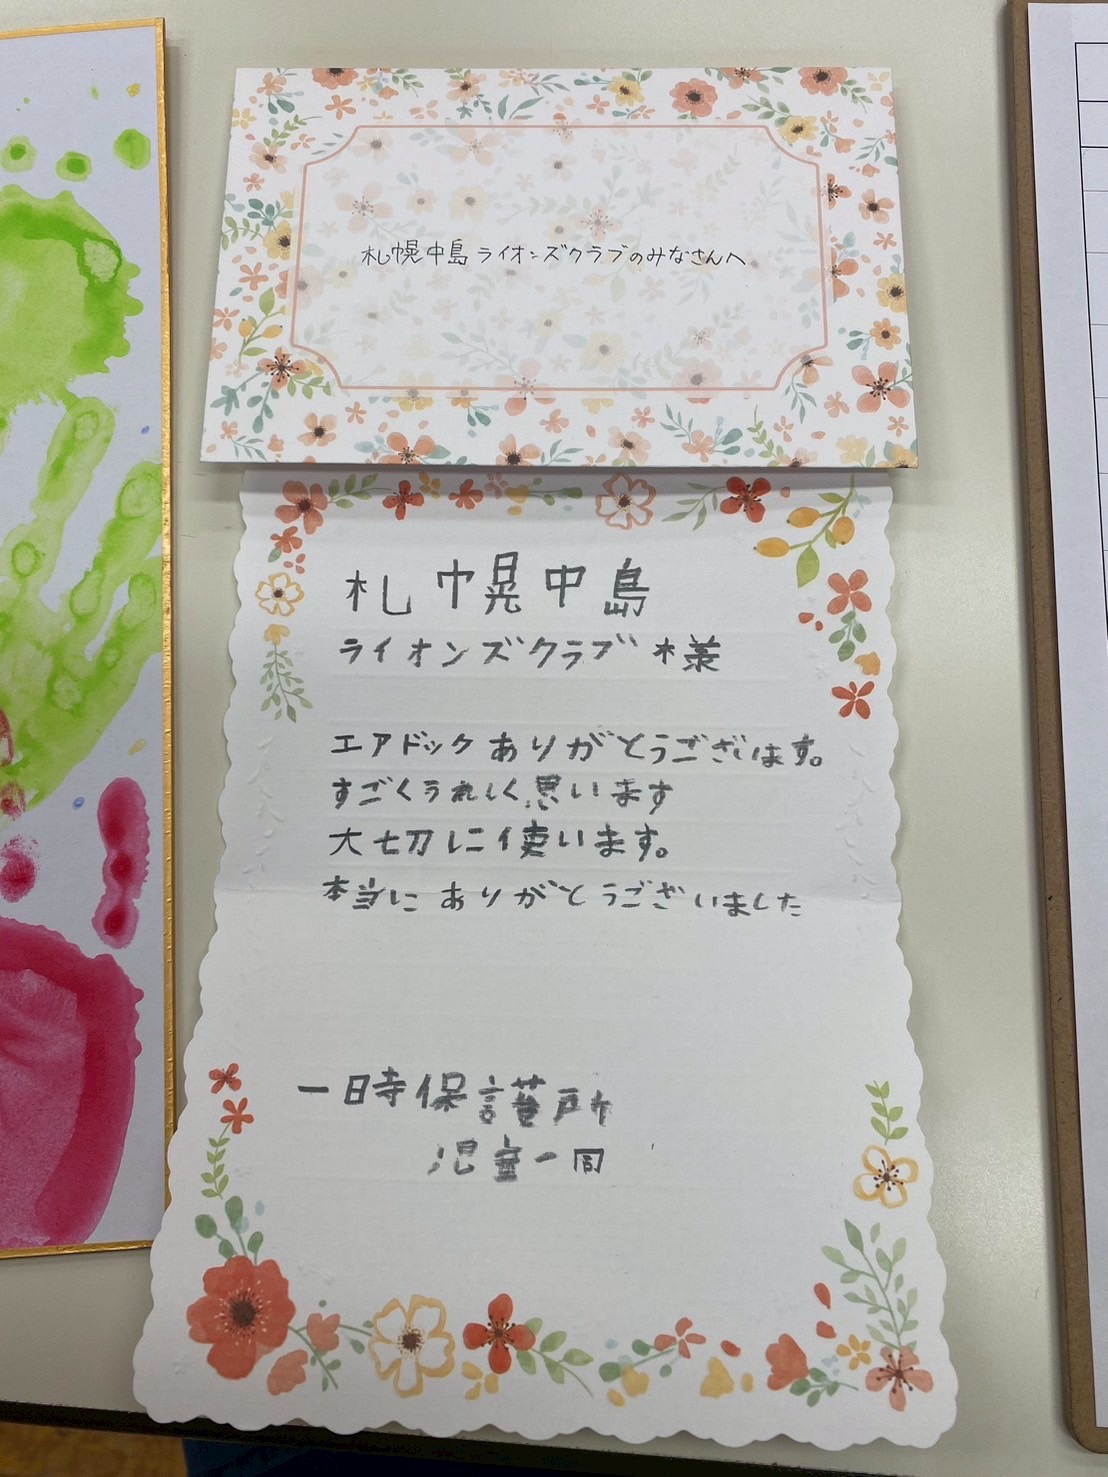 札幌中島ライオンズクラブのみなさんへ
札幌中島
ライオンズクラブ様
エアドックありがとうございます。
すごくうれしく思います
大切に使います。
本当にありがとうございました
一時保護所
児童一同